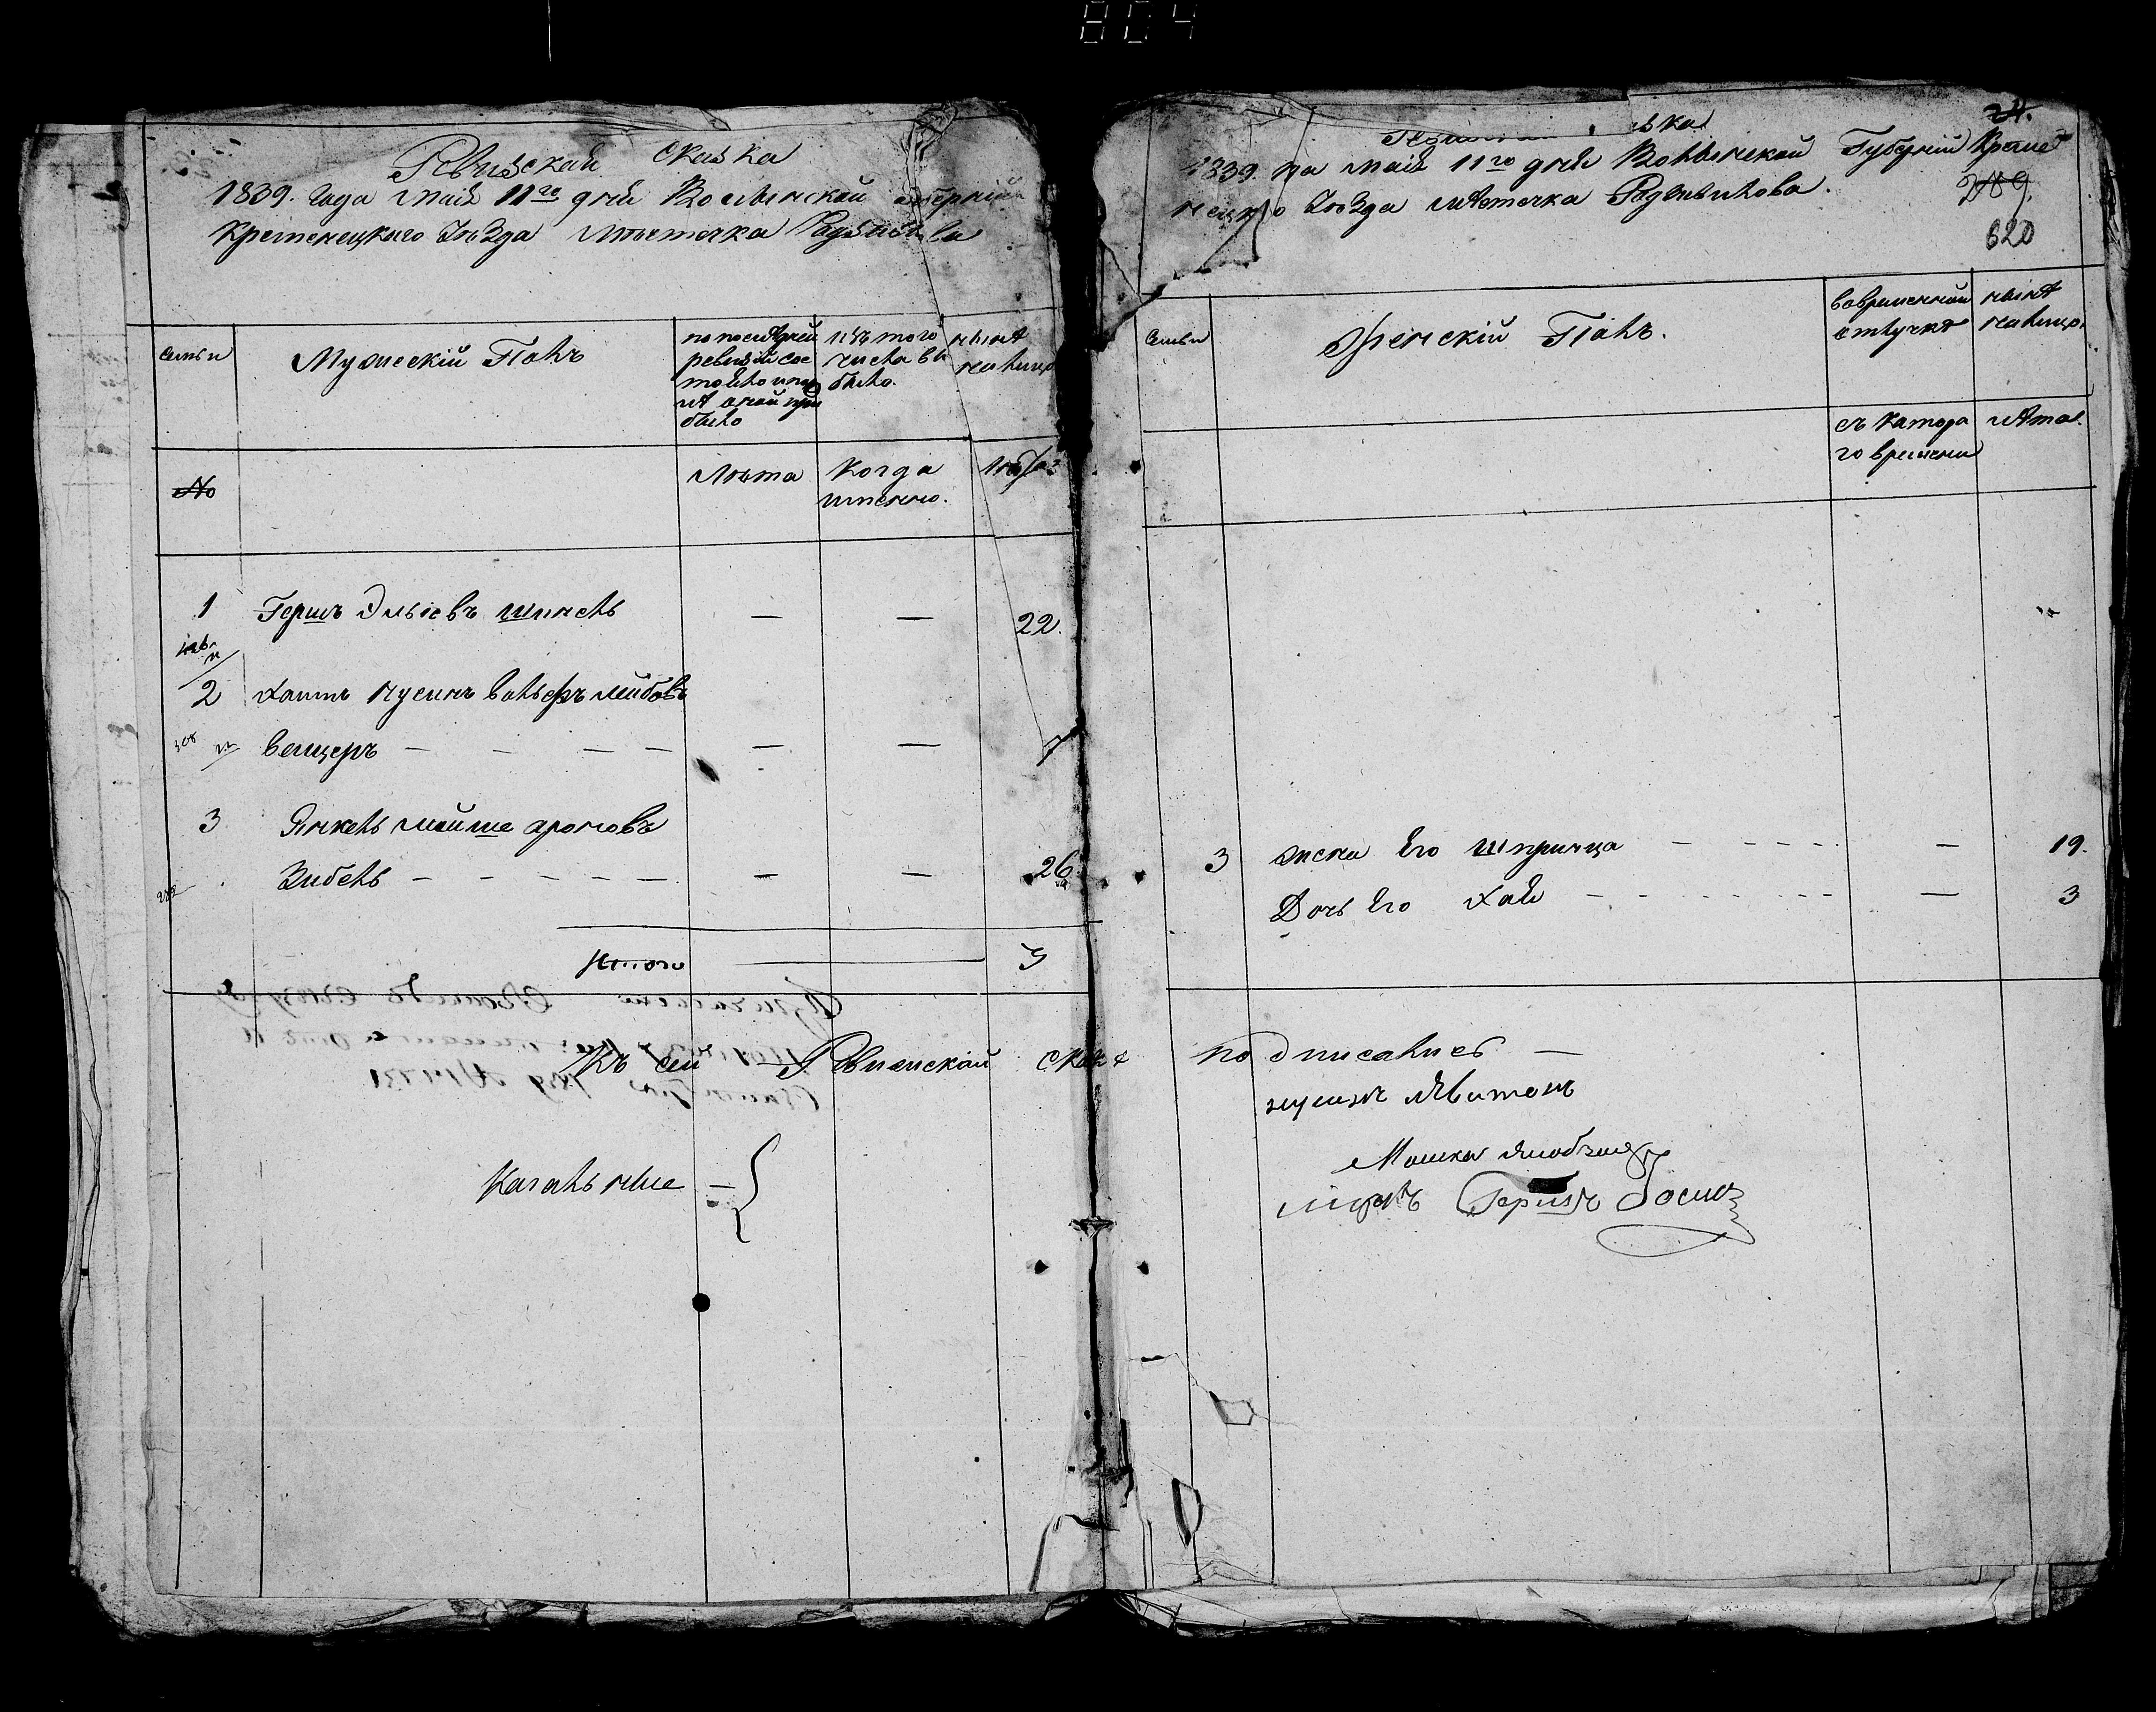 804
Ревизская сказка
1839. Года маія 11го дня Волынской Губерніи
Кременецкаго Уѣзда мѣстечка Радзивилова
семьи
Мужескій Полъ
по последней
ревизіи сос
тояло и пос
лѣ оной при
было
изъ того
числа вы
было.
нынѣ
на лицо
№
Лѣта
Когда
именно.
Лѣта
1 Гершъ Эльіевъ шпигель — — 22.
2 Хаимъ Нусинъ вольфъ лейбовъ
вещеръ — — — — — — 7
3 Янкель мойше ароновъ
Зибель — — — — — — — 26
Итого 3
Къ сей Ревизской сказкѣ
Кагальные —
24.
289
620
1839. Маія 11го дня Волынской Губерніи Креме
нецкаго Уѣзда мѣстечка Радзивилова.
семьи
Женскій Полъ.
во временной
отлучкѣ
нынѣ
на лицо.
съ катора
го времени
лѣта.
3 жена Его шпринца — — — — — 19.
Дочь Его Хая — — — — — 3
подписались —
Гершъ